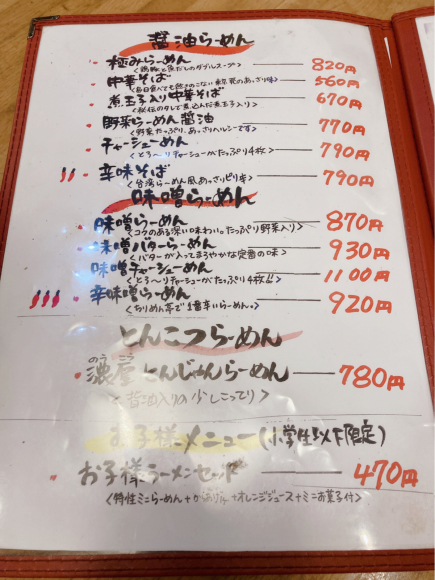 醤油らーめん
極みらーめん 820円
<鶏豚と魚だしのダブルスープ>
中華そば 560円
<毎日食べても飽きのこない 昔のあっさり味>
煮玉子入り中華そば 670円
<秘伝のタレで煮込んだ煮玉子入り>
野菜らーめん醤油 770円
<野菜たっぷり、あっさりヘルシーです>
チャーシューめん 790円
<とろ〜りチャーシューがたっぷり4枚>
辛味そば 790円
<台湾らーめん風あっさりピリ辛>
味噌らーめん
味噌らーめん 870円
<コクのある深い味わい。たっぷり野菜入り>
味噌バターらーめん 930円
<バターが入ってまろやかな定番の味>
味噌チャーシューめん 1100円
<とろ〜りチャーシューがたっぷり4枚>
辛味噌らーめん 920円
<ちりめん亭で1番辛いらーめん。>
とんこつらーめん
濃厚とんじゃんらーめん 780円
<醤油入りの少しこってり>
お子様メニュー(小学生以下限定)
お子様ラーメンセット 470円
<特性ミニらーめん+ +オレンジジュース+ミニお菓子付>